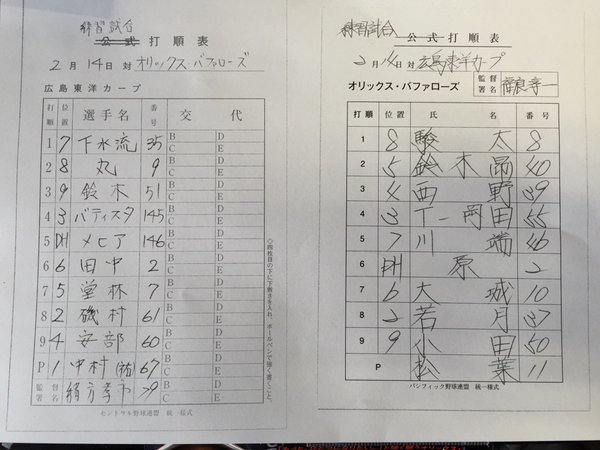 練習試合
公式 打順表
2月14日 対 オリックス・バファローズ
広島東洋カープ
打順 位置 選手名 番号 交代
1 7 下水流 35 B C D E
2 8 丸 9 B C D E
3 9 鈴木 51 B C D E
4 3 バティスタ 145 B C D E
5 DH メヒア 146 B C D E
6 6 田中 2 B C D E
7 5 堂林 7 B C D E
8 2 磯村 61 B C D E
9 4 安部 60 B C D E
P 1 中村(祐) 67 B C D E
監督署名 緒方孝市 79 B C D E
セントラル野球連盟 統一様式
◎四枚目の下に下敷きを入れ、ボールペンで強く書くこと。
練習試合
公式 打順表
2月14日 対 広島東洋カープ
オリックス・バファローズ 監督署名 福良淳一
打順 位置 氏名 番号
1 8 駿太 8
2 5 鈴木昂 40
3 4 西野 39
4 3 T-岡田 55
5 7 川端 46
6 DH 原 2
7 6 大城 10
8 2 若月 37
9 9 小田 50
P 松葉 11
パシフィック野球連盟 統一様式